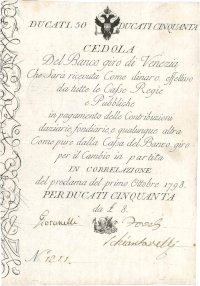 DUCATI. 50 DUCATI CINQUANTA
CEDOLA
Del Banco giro di Venezia
Che Sarà ricevuta Come dinaro effettivo
da tutte le Casse Regie
e Pubbliche
in pagamento delle Contribuzioni
daziarie, fondiarie, e qualunque altra
Come pure dalla Cassa del Banco giro
per il Cambio in partita
IN CORRELAZIONE
del proclama del primo Ottobre 1798.
PER DUCATI CINQUANTA
da £ 8.
Giovanelli
N. 1211.